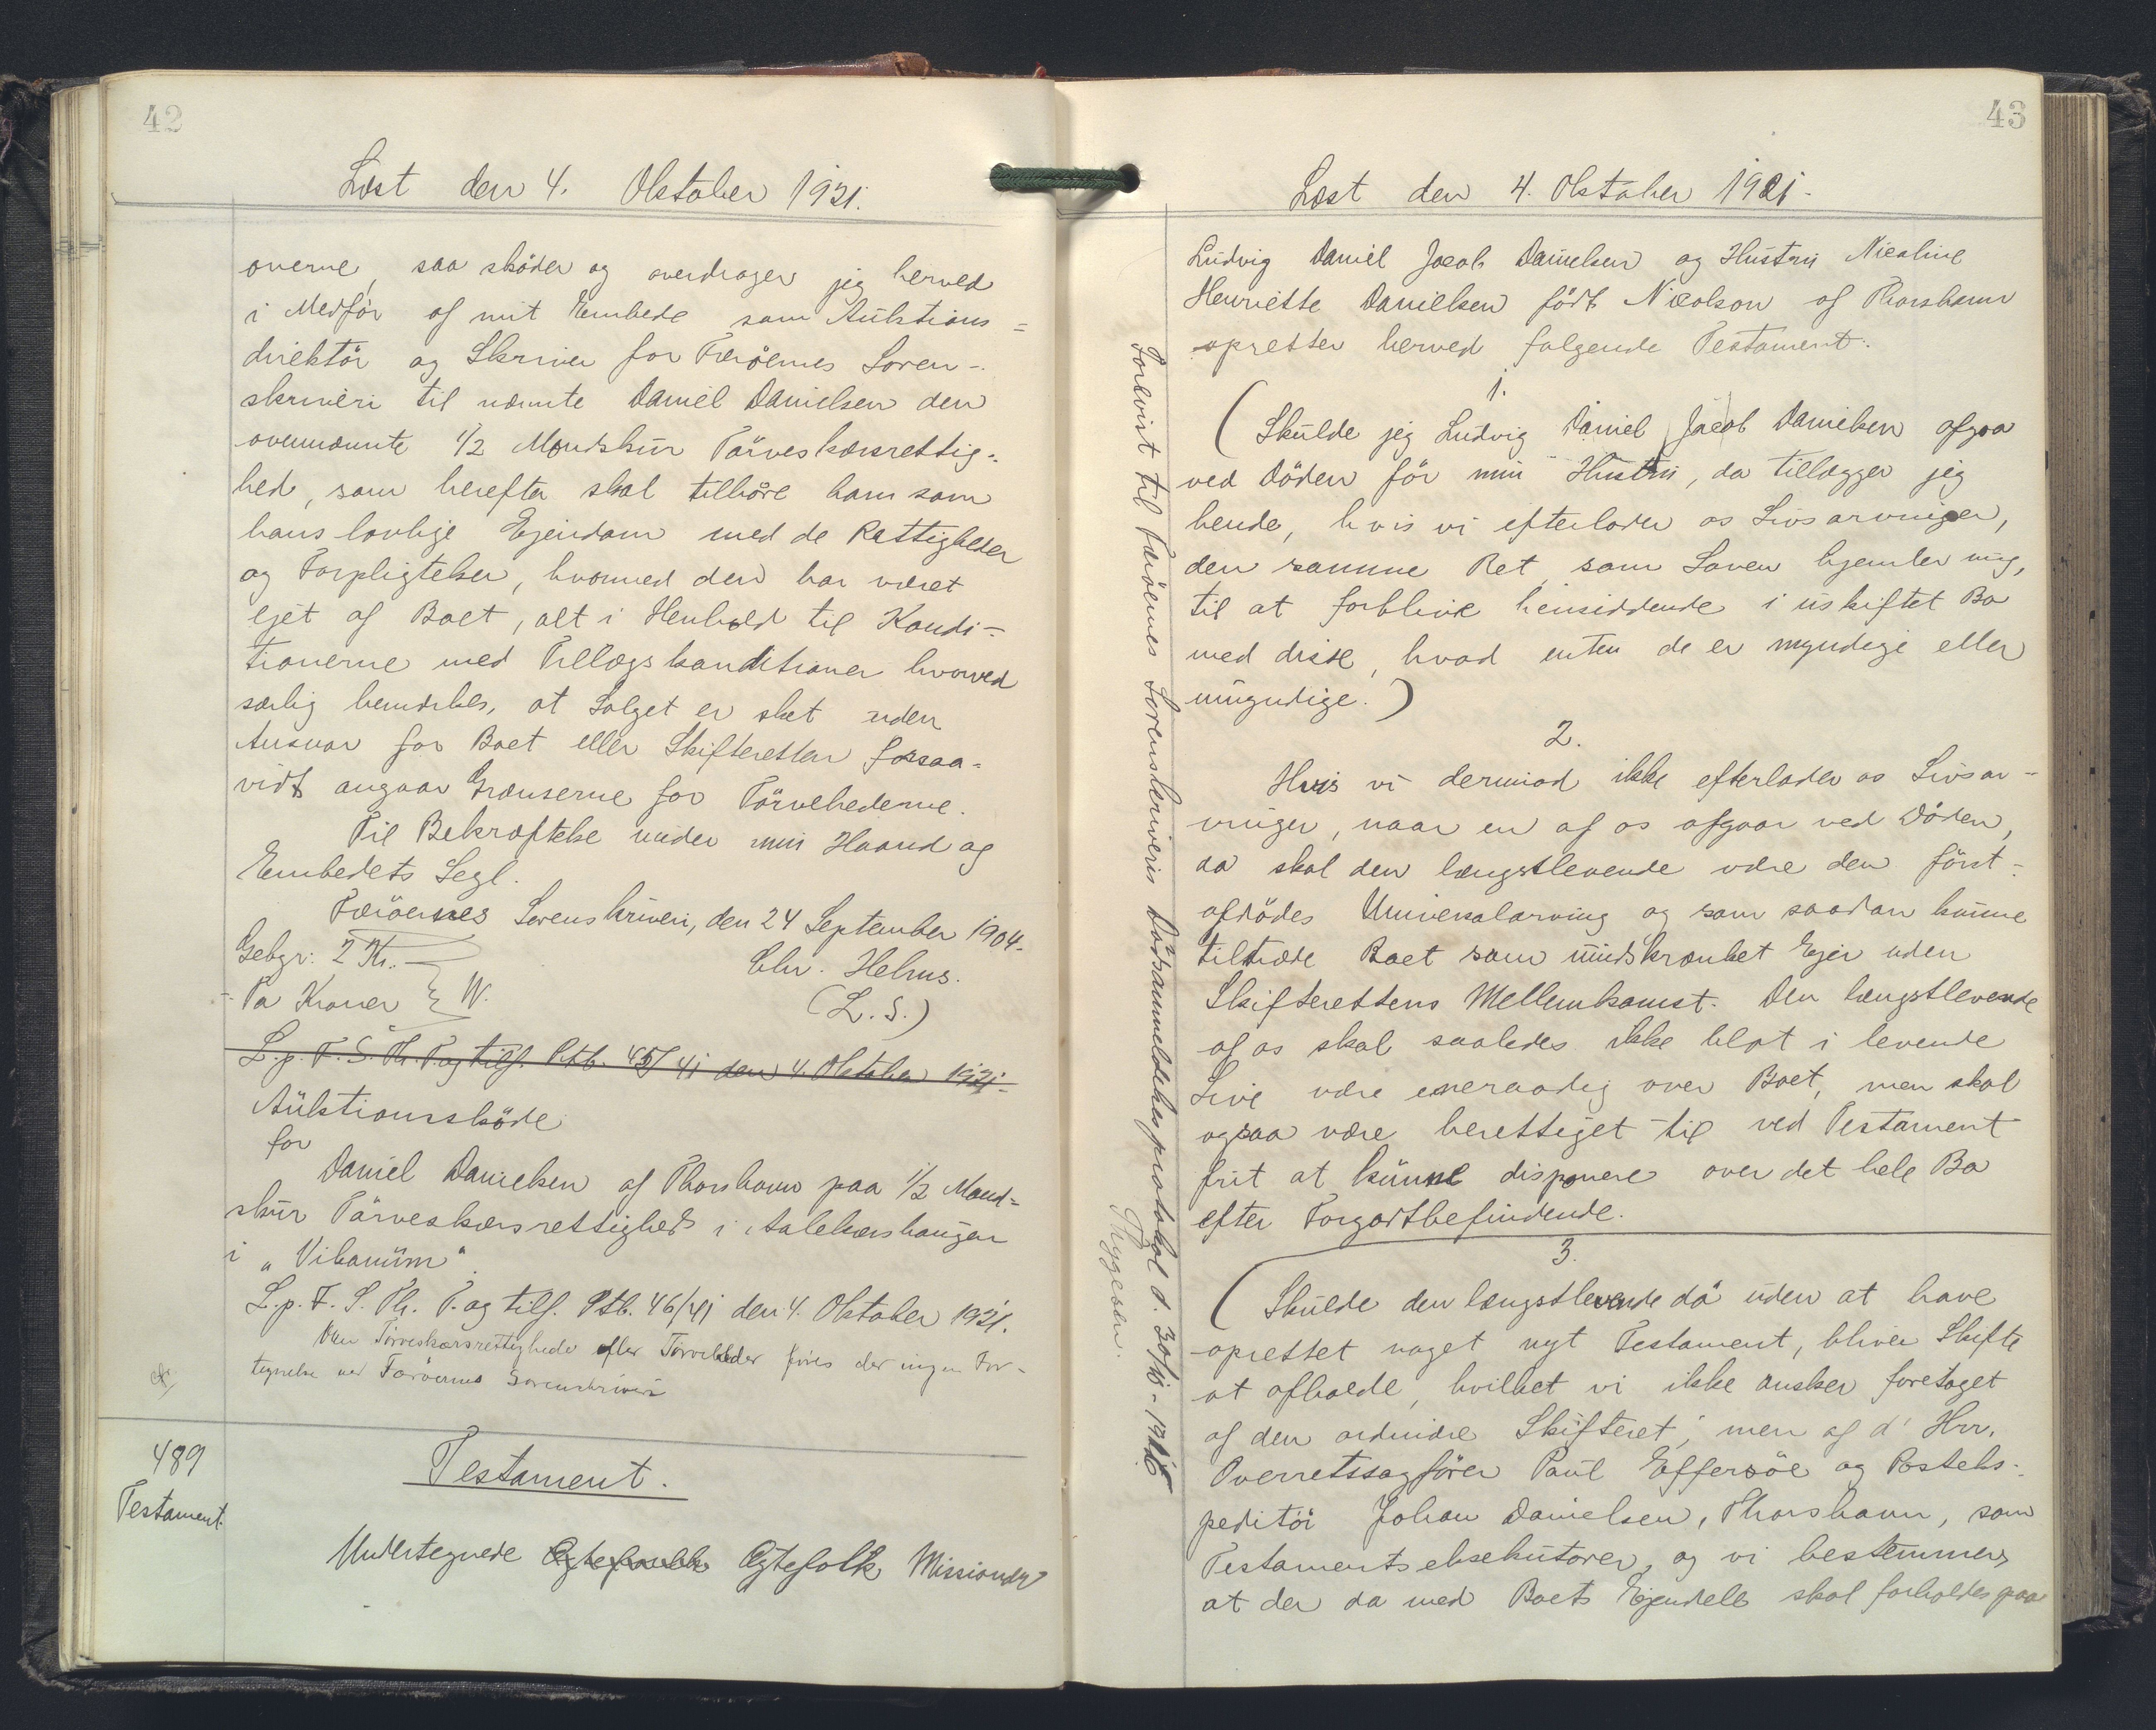 42
Læst den 4. Oktober 1921.
overne, saa skøder og overdrager jeg herved
i Medför af mit Embede som Auktions=
direktör og Skriver for Færöernes Soren-
skriveri til nævnte Daniel Danielsen den
ovennævnte 1/2 Mandskur Törveskærsrettig-
hed, som herefter skal tilhöre ham som
hans lovlige Ejendom med de Rettigheder
og Forpligtelser, hvormed den har været
ejet af Boet, alt i Henhold til Kondi-
tionerne med Tillægskonditioner hvorved
særlig bemærkes, at Salget er sket uden
Ansvar for Boet eller Skifteretten forsaa-
vidt angaar Grænserne for Törvehederne.
Til Bekræftelse under min Haand og
Embedets Segl.
Færöernes Sorenskriveri, den 24 September 1904.
Gebyr: 2 Kr.
Chr. Helms.
- To Kroner W.
(L.S.)
L.p. F. S. Th. P. og tilf. Ptb. 45/41 den 4. Oktober 1921.
Auktionsskøde
for
Daniel Danielsen af Thorshavn paa 1/2 Mand-
skur Törveskærsrettighed i Aalekærshaugen
i "Vikanum".
L.p. F. S. Th. P. og tilf. Ptb. 46/41 den 4. Oktober 1921.
Over Törveskærsrettigheder eller Törveheder föres der ingen For-
tegnelse ved Færöernes Sorenskriveri
489
Testament.
Testament.
Undertegnede Ægtefolk Missionær
43
Læst den 4. Oktober 1921.
Ludvig Daniel Jacob Danielsen og Hustru Nicoline
Henriette Danielsen födt Nicolson af Thorshavn
opretter herved følgende Testament.
1.
(Skulde jeg Ludvig Daniel Jacob Danielsen afgaa
ved Döden för min Hustru, da tillægger jeg
hende, hvis vi efterlader os Livsarvinger,
den samme Ret, som Loven hjemler mig,
til at forblive hensiddende i uskiftet Bo
med disse, hvad enten de er myndige eller
umyndige.)
2.
Hvis vi derimod ikke efterlader os Livsar-
vinger, naar en af os afgaar ved Döden,
da skal den længstlevende være den först-
afdödes Universalarving og som saadan kunne
tiltræde Boet som uindskrænket Ejer uden
Skifterettens Mellemkomst. Den længstlevende
af os skal saaledes ikke blot i levende
Live være eneraadig over Boet, men skal
ogsaa være berettiget til ved Testament
frit at kunne disponere over det hele Bo
efter Forgodtbefindende.
3.
(Skulde den længstlevende dö uden at have
oprettet noget nyt Testament, bliver Skifte
at afholde, hvilket vi ikke ønsker foretaget
af den ordinære Skifteret, men af d' Hrr.
Overretssagförer Paul Effersöe og Posteks-
peditör Johan Danielsen, Thorshavn, som
Testamentseksekutorer, og vi bestemmer,
at der da med Boets Ejendele skal forholdes paa
Forevist til Færöernes Sorenskriveris Dödsanmeldelsesprotokol d. 30/10-1926
Thygesen.